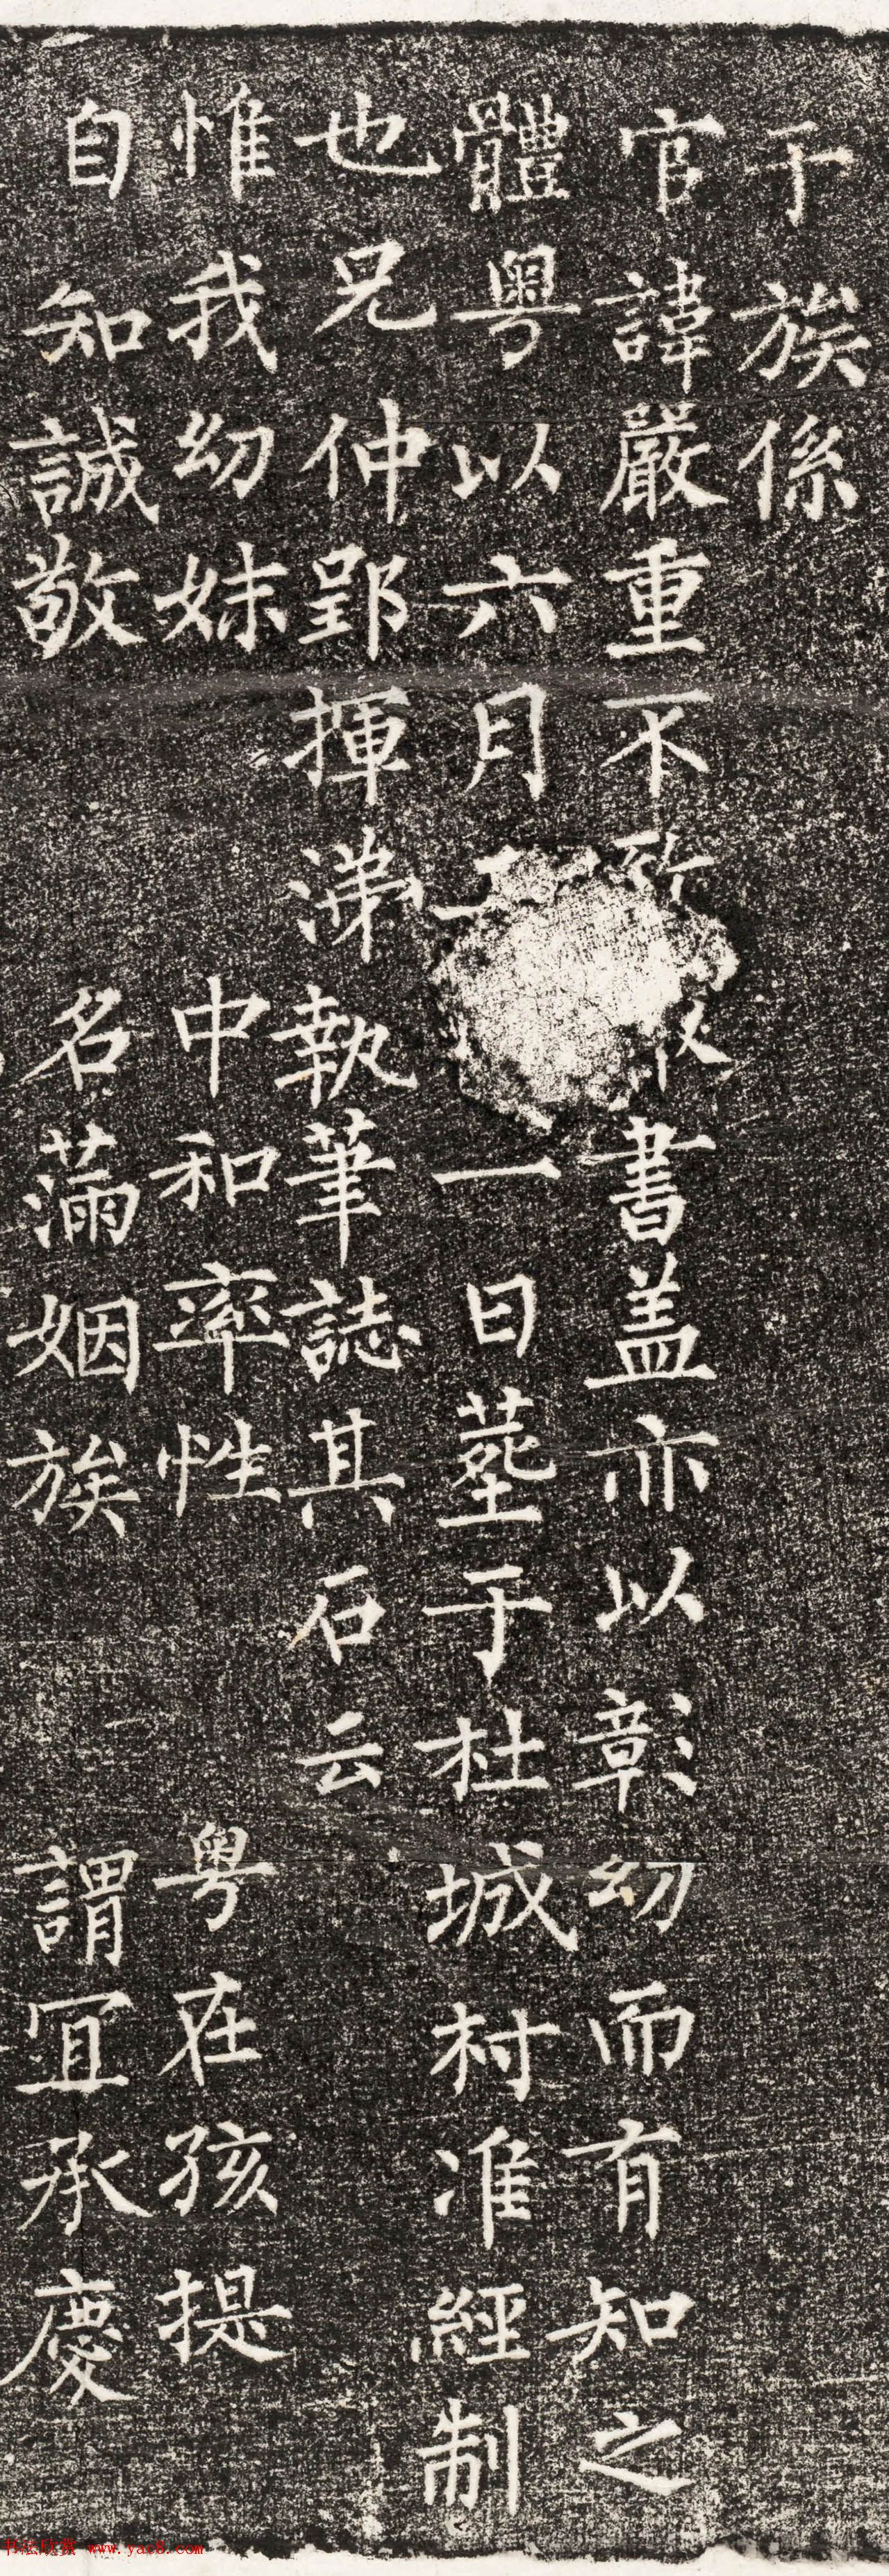 于族係
官諱嚴重不敢書蓋亦以彰幼而有知之
體粤以六月一日塟于杜城村准經制
也兄仲郢揮涕執筆誌其石云
惟我幼妹 中和率性 粤在孩提
自知誠敬 名滿姻族 謂宜承慶
书法欣赏 www.yac8.com